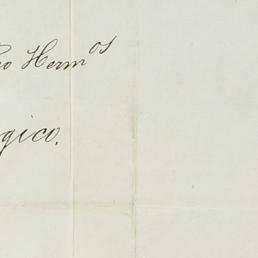 Hermᵒˢ
gico.